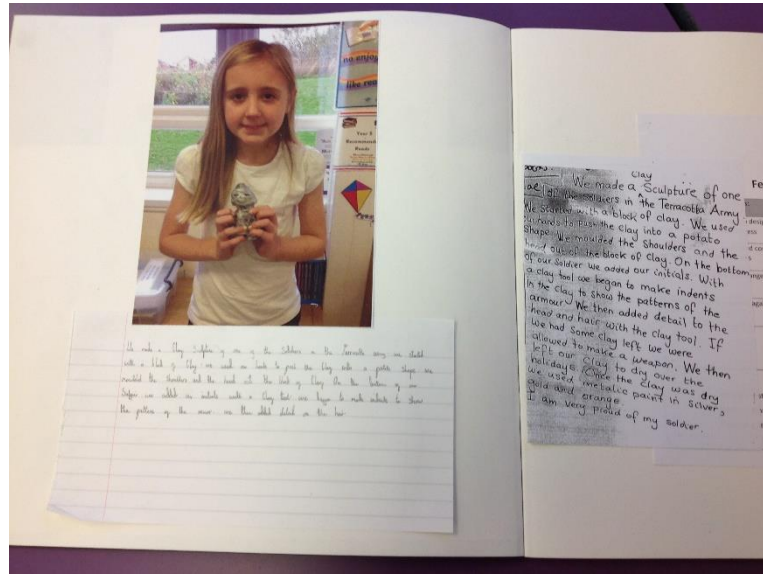 no enjoy
like rea
Year 5
Recommended
Reads
We made a Clay Sculpture of one of the Soldiers in the Terracotta army we started
with a block of Clay we used our hands to push the Clay into a potato Shape we
moulded the Shoulders and the head out the block of Clay On the bottom of our
we added our initials with a Clay tool we began to make indents to Show
the pattern of the armour we then added detail to the hair
Clay
We made a Sculpture of one
of the soldiers in the Terracotta Army
We started with a block of clay. We used
our hands to Push the clay into a potato
Shape. We moulded the Shoulders and the
head out of the block of Clay. On the bottom
of our Soldier we added our initials. With
a clay tool we began to make indents
in the clay to show the patterns of the
armour. We then added detail to the
head and hair with the clay tool. If
we had some clay left we were
allowed to make a weapon. We then
left our Clay to dry over the
holidays. Once the Clay was dry
we used metalic paint in Silver,
gold and orange
I am very proud of my soldier.
Fe